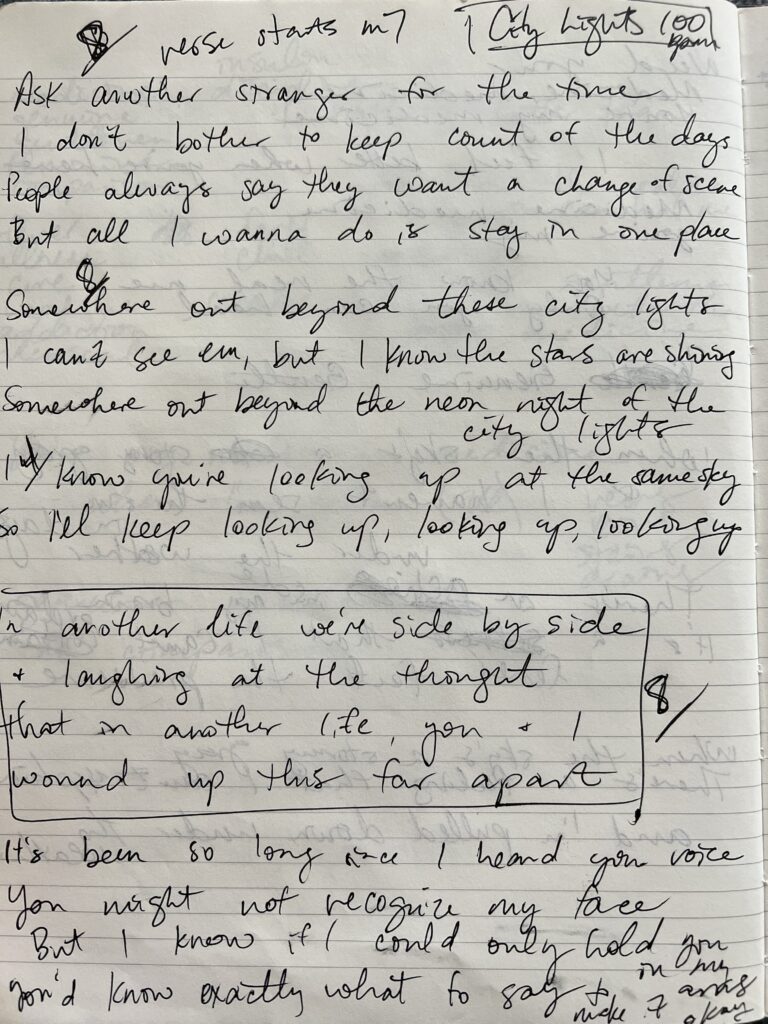 8 verse starts m7 City Lights 100 bpm
Ask another stranger for the time
I don't bother to keep count of the days
People always say they want a change of scene
But all I wanna do is stay in one place
8
Somewhere out beyond these city lights
I can't see em, but I know the stars are shining
Somewhere out beyond the neon night of the
city lights
I know you're looking up at the same sky
So I'll keep looking up, looking up, looking up
In another life we're side by side
+ laughing at the thought
that in another life, you + I
wound up this far apart
8
It's been so long since I heard you voice
You might not recognize my face
But I know if I could only hold you
in my arms
You'd know exactly what to say + make it okay